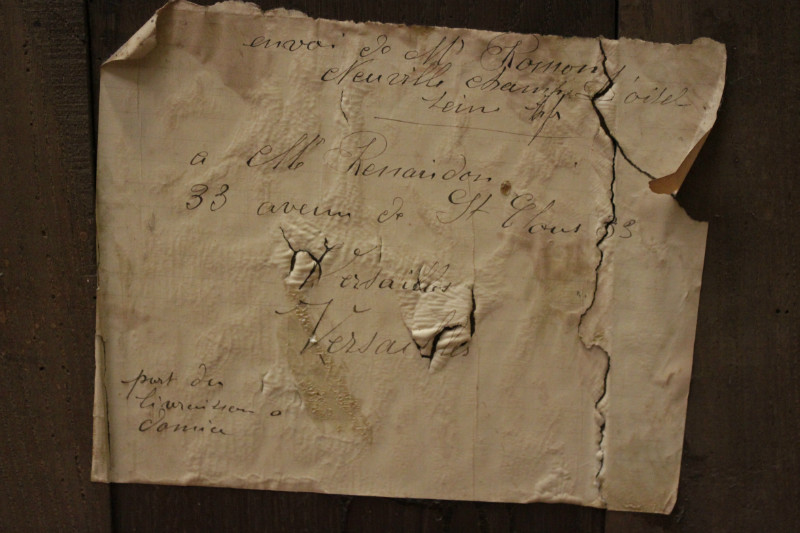 envoi de Mr Romont
Neuville champ d'oisel
Seine
a Mr Renaudon
33 avenue de St Cloud 33
Versailles
Versailles
port du
livraison a
domicile